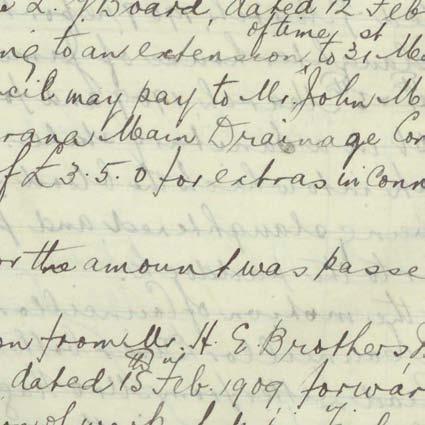 L. G Board, dated 12 Feb
ing to an extension of time to 31st Ma
cil may pay to Mr. John M
rana Main Drainage Con
f £3.5.0 for extras in conn
or the amount was passe
on from Mr. H. E. Brothers,
dated 15th Feb. 1909 forwar